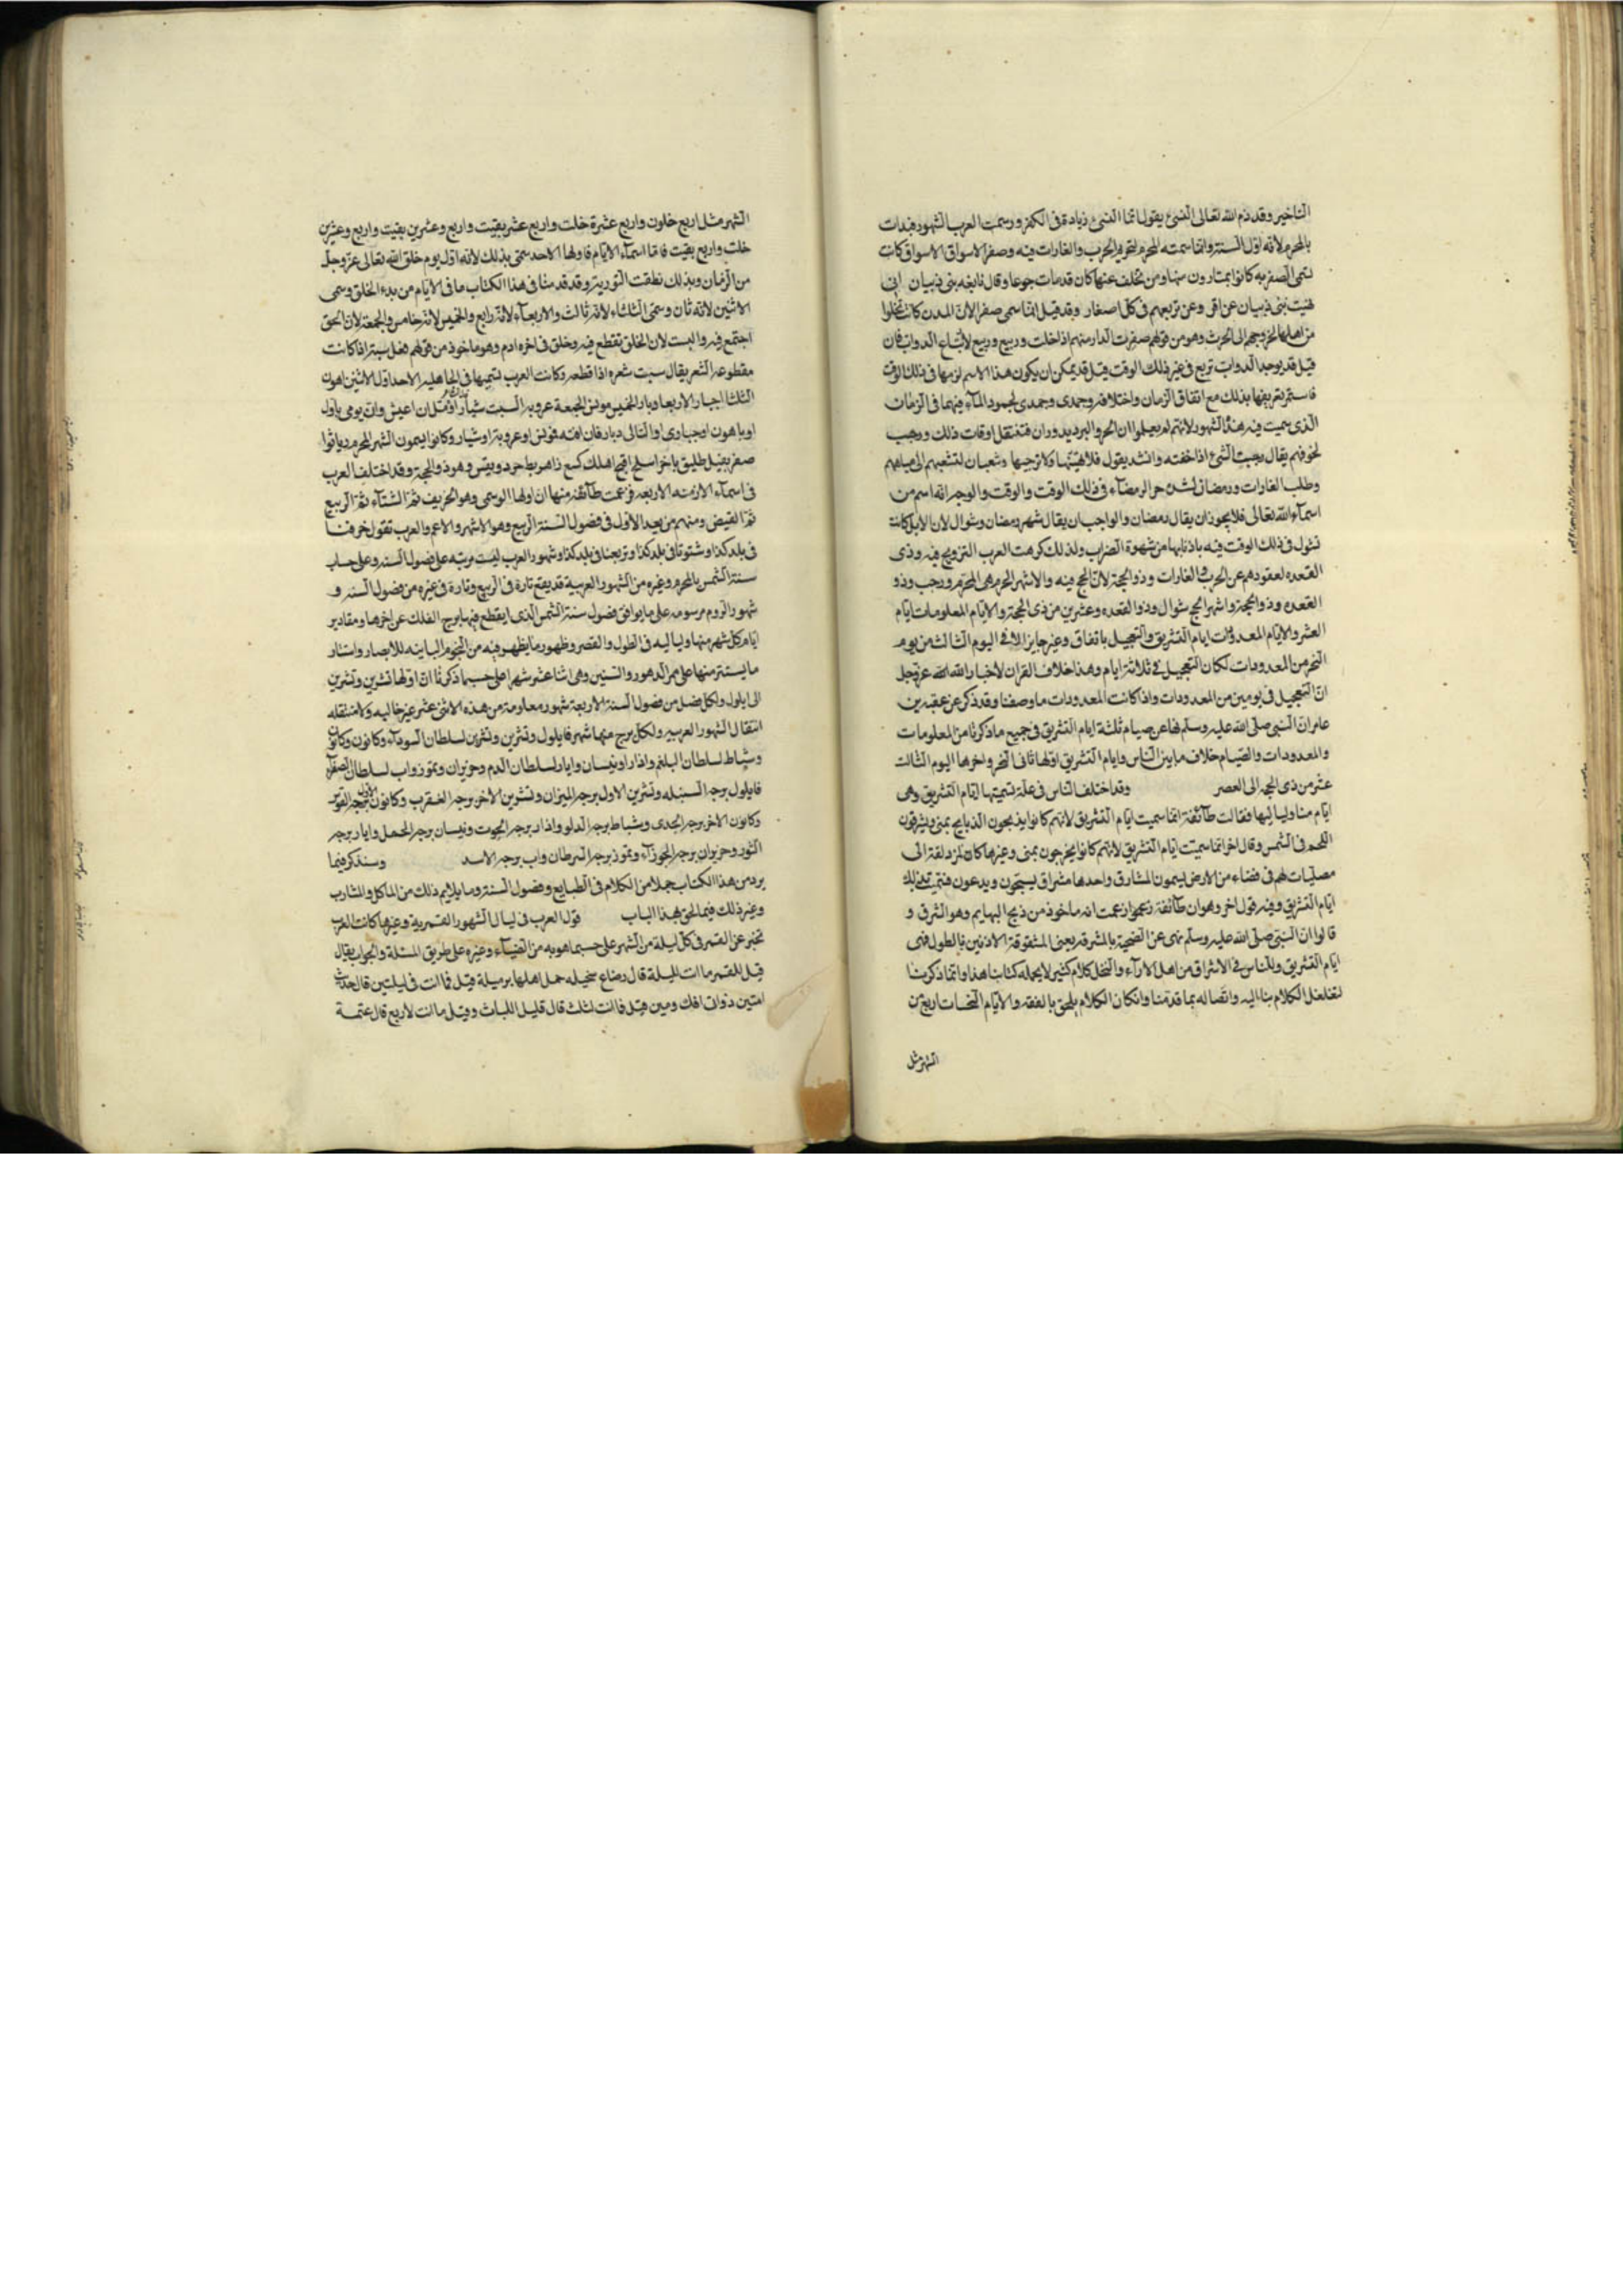 التاخير وقد ذم الله تعالى النسئ بقول انما النسئ زيادة فى الكفر ورسمت العرب الشهور فبدات
بالمحرم لانه اول السنة وانما سمته المحرم لتحريم الحرب والغارات فيه وصفر الاسواق الاسواق كانت
تسمى الصفريه كانوا يمتارون منها ومن تخلف عنها كان قد مات جوعا وقال نابغه بنى ذبيان انى
نهيت بنى ذبيان عن اقر وعن تربعهم فى كل اصفار وقد قيل انما سمى صفر الان المدن كانت تخلوا
من اهلها لخروجهم الى الحرب وهو من قولهم صفرت الدار منهم اذا خلت وربيع وربيع لارتباع الدواب فان
قيل قد يوجد الدواب تربع فى غير ذلك الوقت قيل قد يمكن ان يكون هذا الاسم لزمها فى ذلك الوقت
فاستمر تعريفها بذلك مع انتقال الزمان واختلافه وجمدى وجمدى لجمود المآء فيهما فى الزمان
الذى سميت فيه هذه الشهور لانهم لم يعلموا ان الحر والبرد يدوران فتنتقل اوقات ذلك ورجب
لخوفهم يقال رجبت الشئ اذا خفته وانشد يقول فلا تهيبها ولا ترجبها وشعبان لتشعبهم الى مياههم
وطلب الغارات ورمضان لشدة حر الرمضآء فى ذلك الوقت والوقت والوجه انه اسم من
اسمآء الله تعالى فلا يجوز ان يقال رمضان والواجب ان يقال شهر رمضان وشوال لان الابل كانت
تشول فى ذلك الوقت فيه باذنابها من شهوة الضراب ولذلك كرهت العرب التزويج فيه وذى
القعده لعقودهم عن الحرب والغارات وذو الحجة لان الحج فيه والاشهر الحرم هى المحرم ورجب وذو
القعده وذو الحجة واشهر الحج شوال وذو القعده وعشرين من ذى الحجة والايام المعلومات ايام
العشر والايام المعدودات ايام التشريق والتعجيل باتفاق وغير جايز الا فى اليوم الثالث من يوم
النحر من المعدودات لكان التعجيل فى ثلاثة ايام وهذا خلاف القران لاخبار الله الله عز وجل
ان التعجيل فى يومين من المعدودات واذا كانت المعدودات ما وصفنا وقد ذكر عن عقبه بن
عامر ان النبى صلى الله عليه وسلم نها عن صيام ثلثة ايام التشريق فى جميع ما ذكرنا من المعلومات
والمعدودات والصيام خلاف ما بين الناس وايام التشريق اولها ثانى النحر واخرها اليوم الثالث
عشر من ذى الحجه الى العصر وقد اختلف الناس فى علة تسميتها ايام التشريق وهى
ايام منا ولياليها فقالت طآئفة انما سميت ايام التشريق لانهم كانوا يذبحون الذبايح بمنى ويشرقون
اللحم فى الشمس وقال اخر انما سميت ايام التشريق لانهم كانوا يخرجون بمنى وغيرها كالمزدلفة الى
مصليات لهم فى فضاء من الارض يسمون المشارق واحدها مشراق يسبحون ويدعون فسميت بذلك
ايام التشريق وفيه قول اخر وهو ان طآئفة زعموا زعمت انه ماخوذ من ذبح البهايم وهو الشرق و
قالوا ان النبى صلى الله عليه وسلم نهى عن الضحية بالمشرقه يعنى المشقوقة الاذنين بالطول فهى
ايام التشريق وللناس فى الاشراق من اهل الارآء والنحل كلام كثير لا يحمله كتابنا هذا وانما ذكرنا
لتغلغل الكلام بنا اليه واتصاله بما قدمنا وان كان الكلام يلحق بالفقه والايام النحسات اربع من
الشهر مثل
الشهر مثل اربع خلون واربع عشرة خلت واربع عشر بقيت واربع وعشرين بقيت واربع وعشرين
خلت واربع بقيت فاما اسمآء الايام فاولها الاحد سمى بذلك لانه اول يوم خلق الله تعالى عز وجل
من الزمان وبذلك نطقت التوريه وقد قدمنا فى هذا الكتاب ما فى الايام من بدء الخلق وسمى
الاثنين لانه ثان وسمى الثلثاء لانه ثالث والاربعآء لانه رابع والخميس لانه خامس والجمعة لان الخلق
اجتمع فيه والسبت لان الخلق تقطع فيه وخلق فى اخره ادم وهو ماخوذ من قولهم نعل سبته اذا كانت
مقطوعه الشعر يقال سبت شعره اذا قطعه وكانت العرب تسميها فى الجاهليه الاحد اول الاثنين اهون
الثلثا اجبار الاربعا دبار الخميس مونس الجمعة عروبه السبت شيار اؤمل ان اعيش وان يومى باول
او باهون او جبارى او التالى دبار فان افته فمونس او عروبة او شيار وكانوا يسمون الشهر المحرم
صفر بقيل طليق باخر اسلخ افتح اهلك كسع زاهر بط حرد وبقيس وهو ذو الحجة وقد اختلف العرب
فى اسمآء الازمنه الاربعه فزعمت طآئفة منها ان اولها الوسمى وهو الخريف ثم الشتآء ثم الربيع
ثم القيض ومنهم من يعد الاول فى فصول السنة الربيع وهو الاشهر والاعم والعرب تقول خرفنا
فى بلد كذا وشتونا فى بلد كذا وتربعنا فى بلد كذا وشهور العرب ليست مرتبه على فصول السنه وعلى حساب
سنة الشمس بل المحرم وغيره من الشهور العربية قد يقع تارة فى الربيع وتارة فى غيره من فصول السنه و
شهور الروم مرسومه على ما يوافق فصول سنة الشمس الذى يقطع فيها برج الفلك عن اخرها ومقادير
ايام كل شهر منها ولياليه فى الطول والقصر وظهور ما يظهر فيه من النجوم الباينه للابصار واستتار
ما يستتر منها على ممر الدهور والسنين وهى اثنا عشر شهرا على حسب ما ذكرنا ان اولها تشرين وتشرين
الى ايلول ولكل فصل من فصول السنة الاربعة شهور معلومة من هذه الاثنى عشر غير خاليه ولا منتقله
انتقال الشهور العربيه ولكل برج منها شهر فايلول وتشرين وتشرين لسلطان السودآء وكانون وكانون
وشباط لسلطان البلغم واذار ونيسان وايار لسلطان الدم وحزيران وتموز واب لسلطان الصفرآء
فايلول برجه السنبله وتشرين الاول برجه الميزان وتشرين الاخر برجه العقرب وكانون الاول برجه القوس
وكانون الاخر برجه الجدى وشباط برجه الدلو واذار برجه الحوت ونيسان برجه الحمل وايار برجه
الثور وحزيران برجه الجوزآء وتموز برجه السرطان واب برجه الاسد وسنذكر فيما
يرد من هذا الكتاب جملا من الكلام فى الطبايع وفصول السنة وما يلايم ذلك من الماكل والمشارب
وغير ذلك فيما لحق بهذا الباب قول العرب فى ليال الشهور القمرية وغيرها كانت العرب
تخبر عن القمر فى كل ليلة من الشهر على حسب ما هو به من الضيآء وغيره على طريق المسئلة والجواب يقال
قيل للقمر ما انت لليلة قال رضاع سخيله حمل اهلها برميلة قيل فما انت فى ليلتين قال حديث
امتين ذواتى افك ومين قيل فما انت لثلث قال قليل اللباث وقيل ما انت لاربع قال عتمة